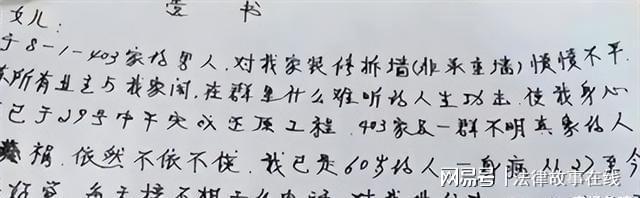 遗书
女儿:
于8-1-403家的男人.对我家装修拆墙(非承重墙)愤愤不平.
所有业主与我家闹.在群里什么难听的人生攻击.使我身心
已于29号中午实成还原工程.403家及一群不明真象的人
祸.依然不依不饶.我已是60岁的人一身病11.27至今
网易号|法律故事在线